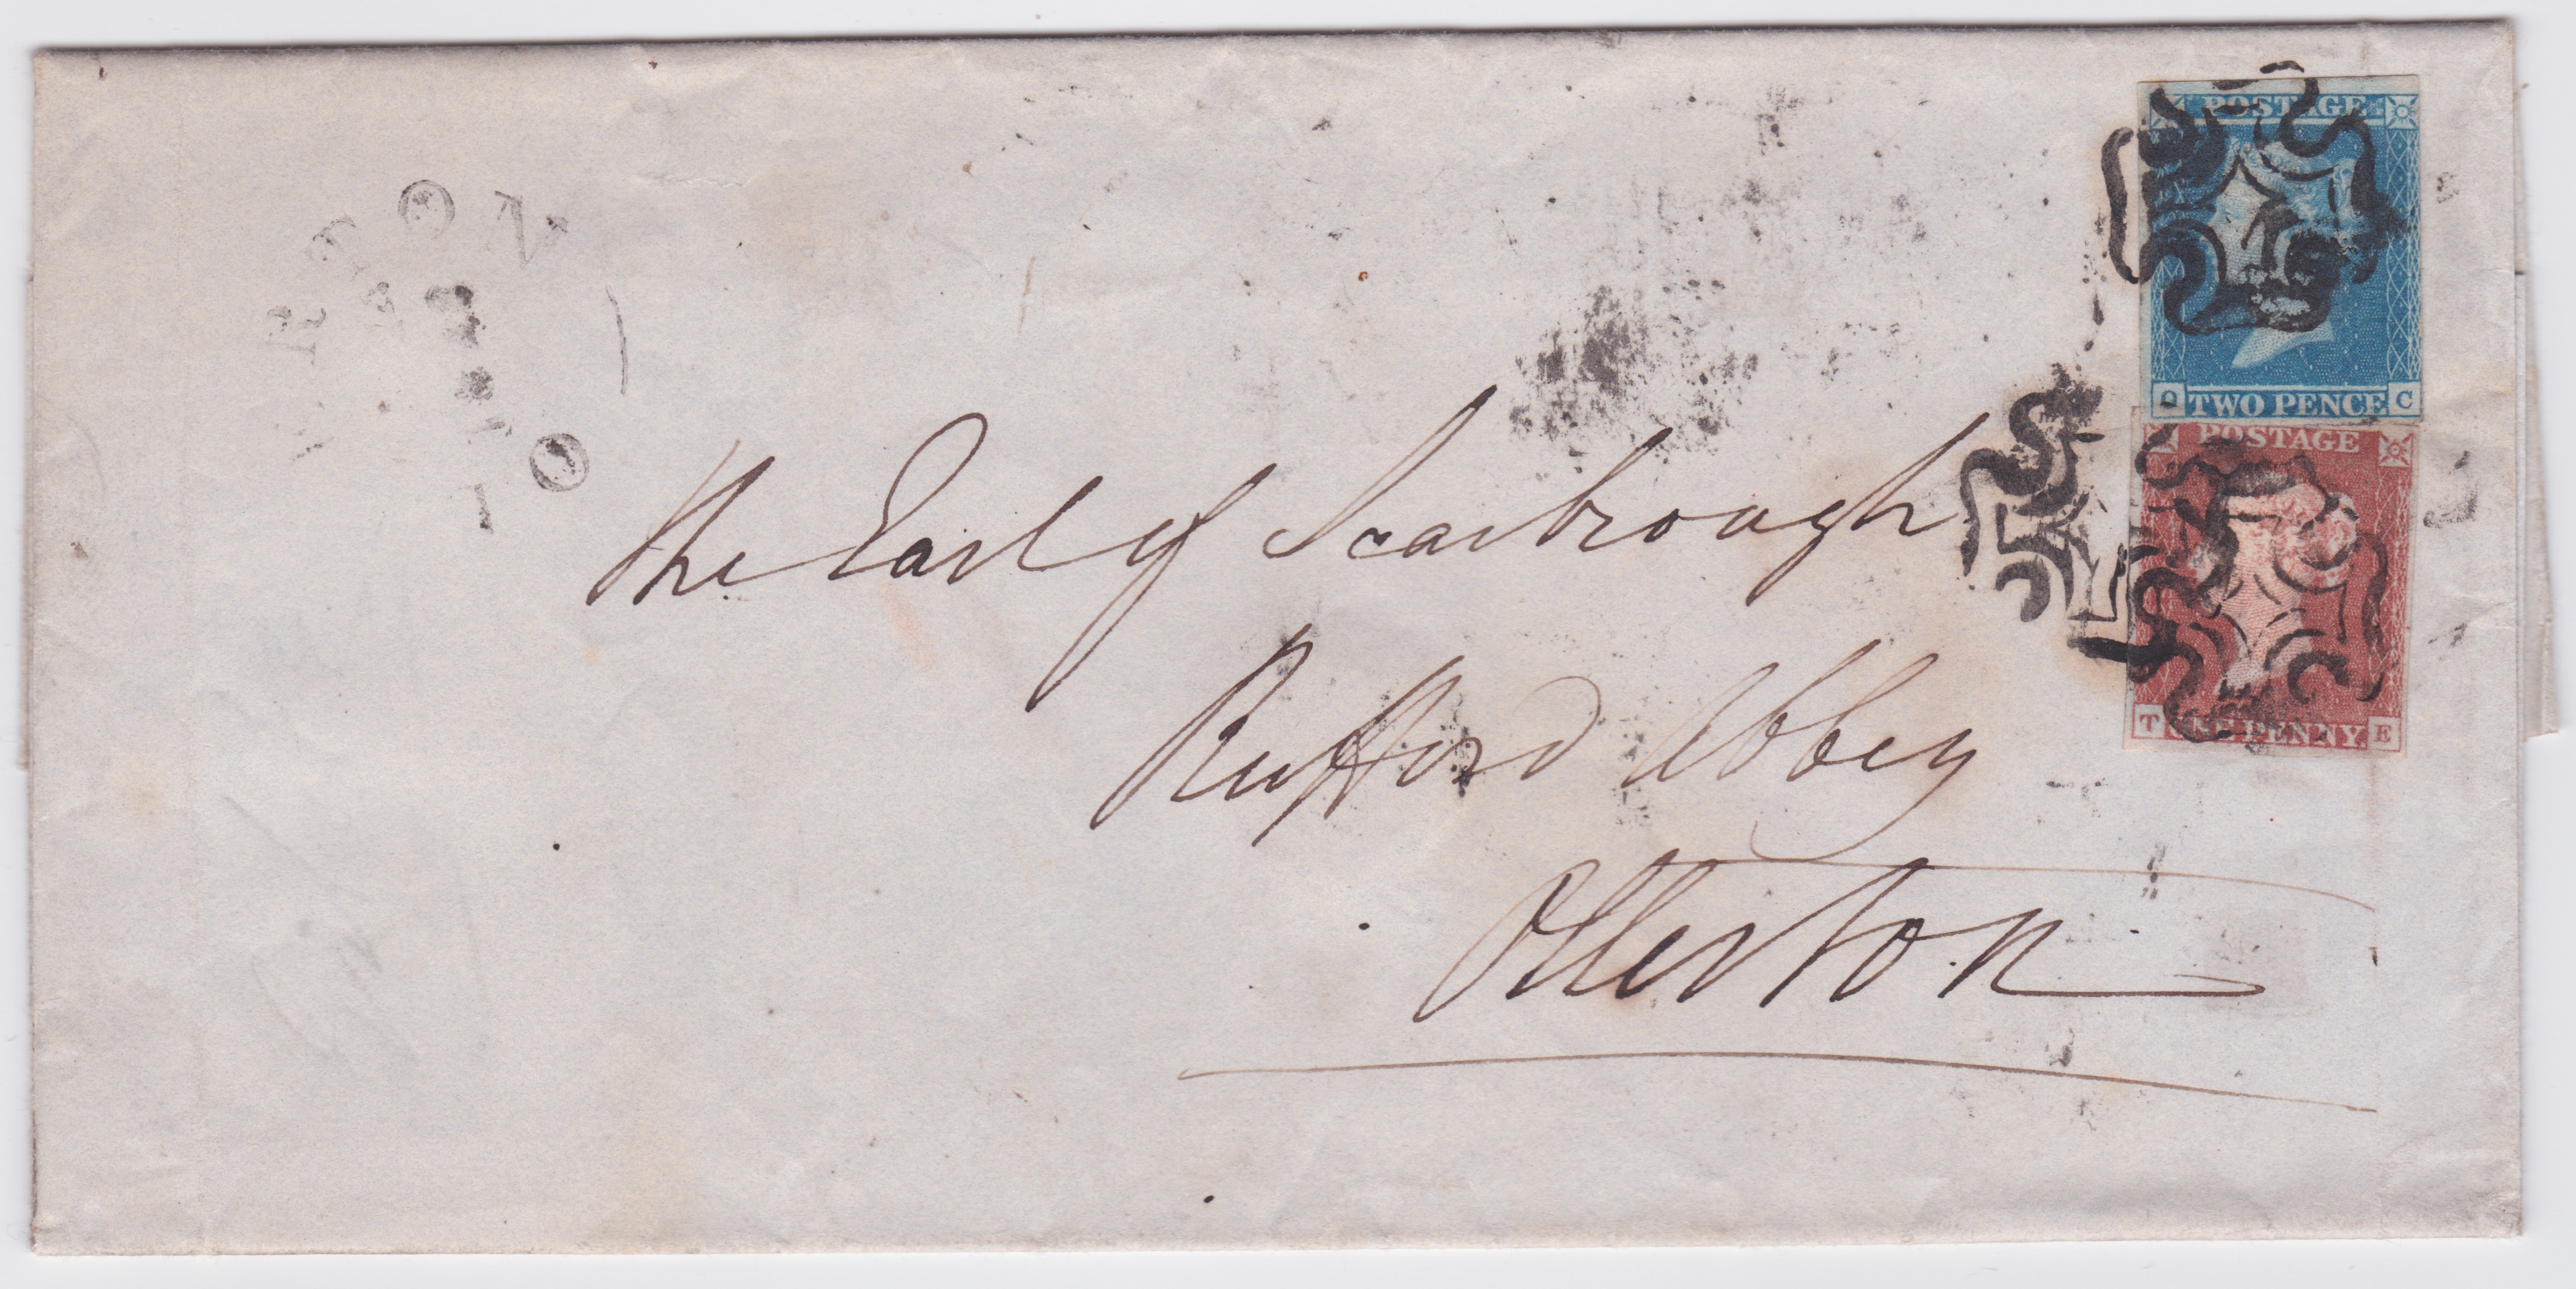 POSTAGE
TWO PENCE C
POSTAGE
T ONE PENNY. E
The Earl of Scarbrough
Rufford Abbey
Ollerton